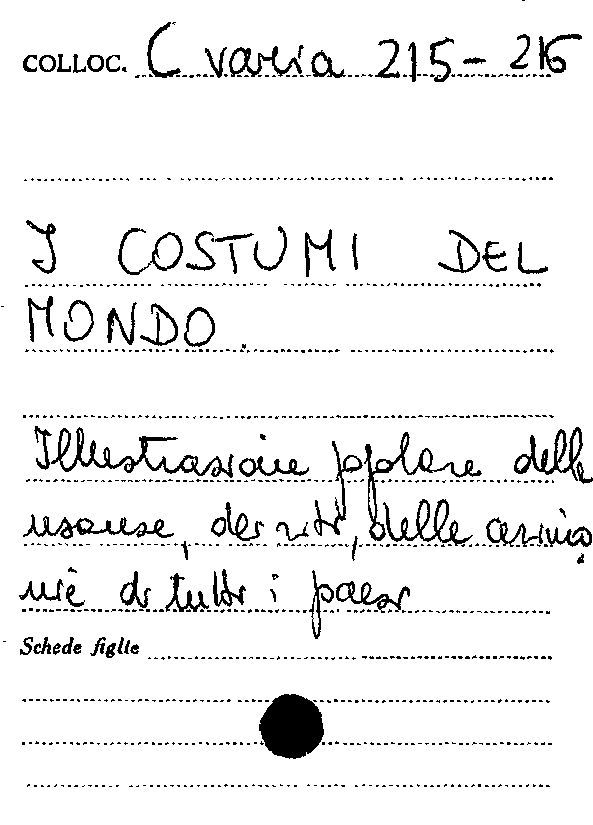 COLLOC. C varia 215-216
I COSTUMI DEL
MONDO.
Illustrazione popolare delle
usanze, dei riti, delle cerimo
nie di tutti i paesi
Schede figlie